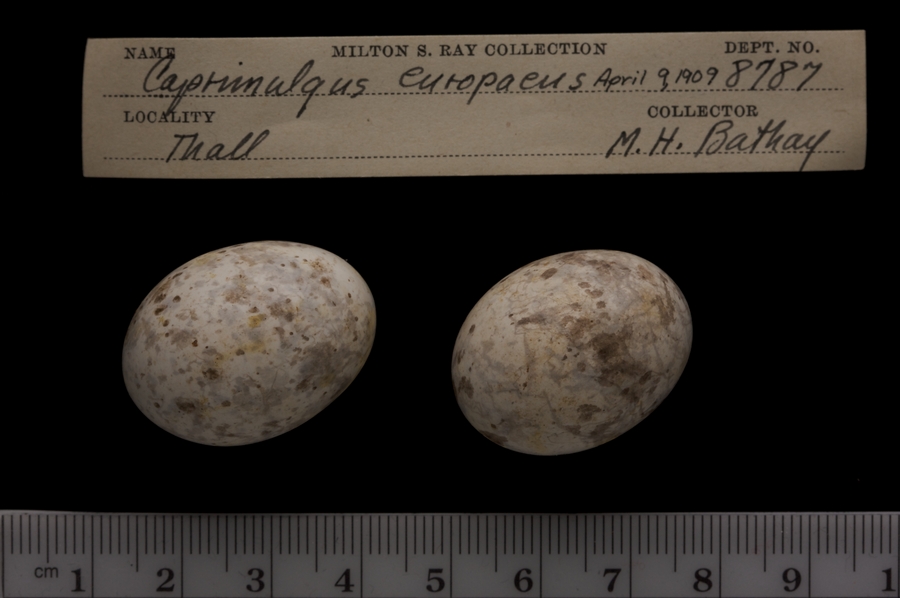 NAME MILTON S. RAY COLLECTION DEPT. NO.
Caprimulgus europaeus April 9, 1909 8787
LOCALITY COLLECTOR
Thall M. H. Bathay
cm 1 2 3 4 5 6 7 8 9 1